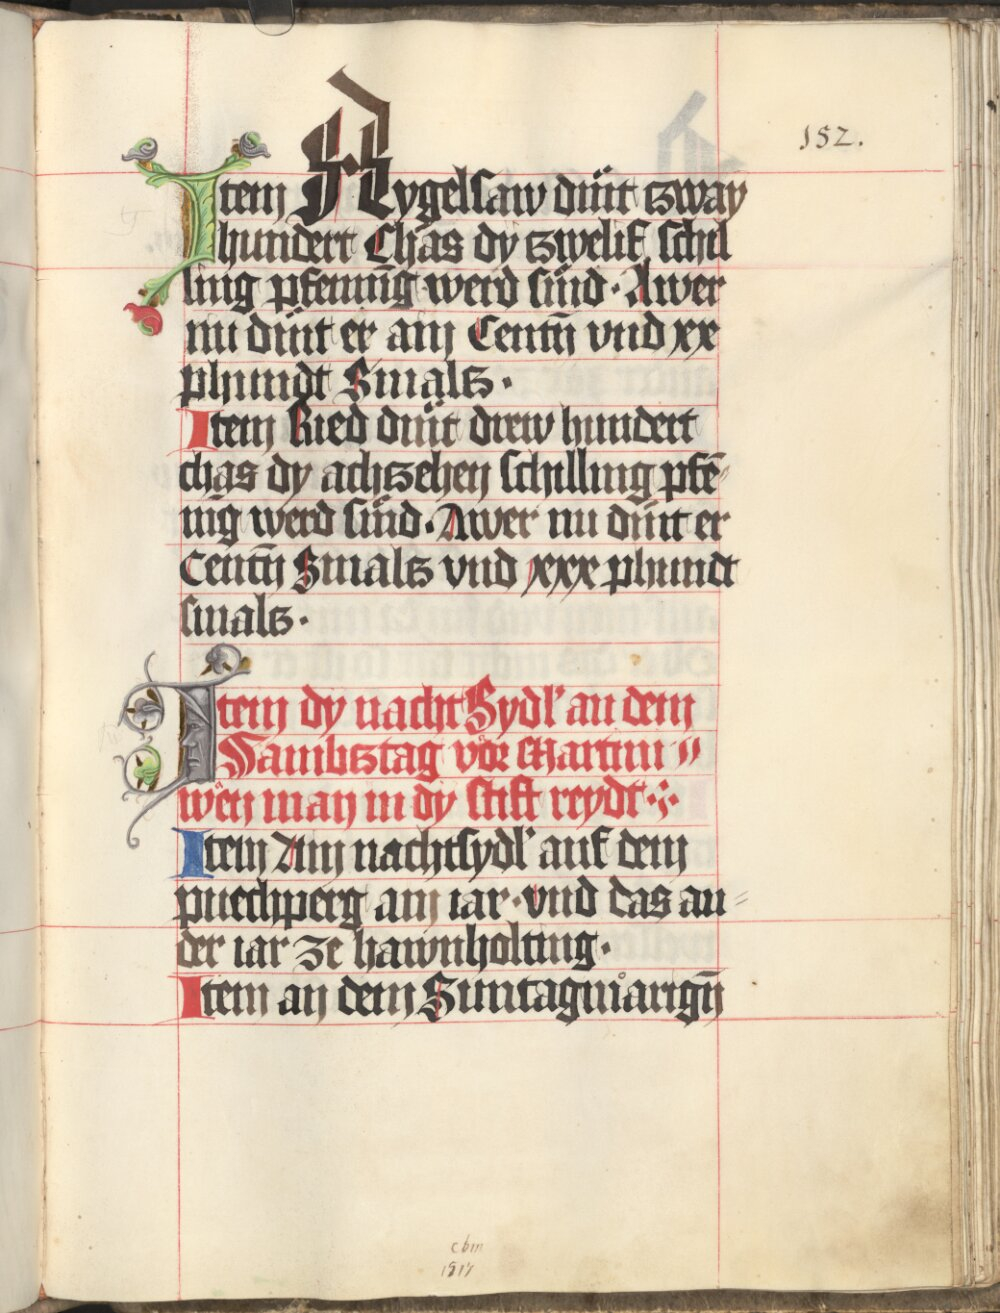 152.
Item Kygelsaw diͤnt tzway
hundert Chas dy tzwelif schil
ling pfenniͤg werd sind · Awer
nu diͤnt er ain Centn̄ vnd xx
phundt Smalts ·
Item Ried diͤnt drew hundert
chas dy achtzehen schilling pfē-
nīg werd sind · Awer nu diͤnt er
Centn̄ Smalts vnd xxx phundt
smalts ·
Item dy nacht Sydl' an dem
Sambtztag vor Martini
wen man in dy stift reydt
Item Ain nachtsydl' auf dem
puechperg ain iar · vnd das an=
der iar ze hawnholting ·
Item an dem Suntag marign̄
cbm